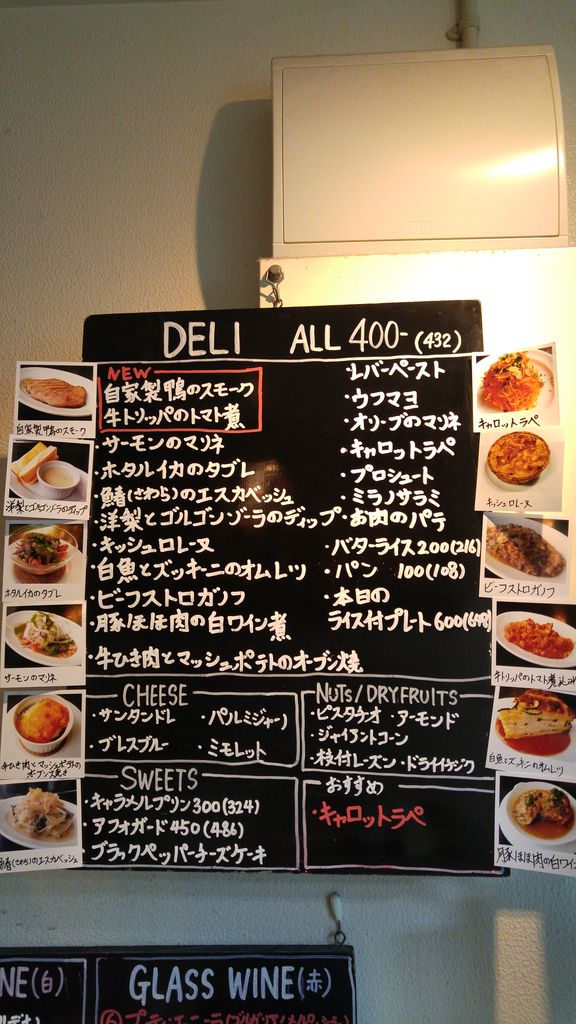 DELI ALL 400-(432)
NEW
自家製鴨のスモーク
牛トリッパのトマト煮
・サーモンのマリネ
・ホタルイカのタブレ
・鰆(さわら)のエスカベッシュ
・洋梨とゴルゴンゾーラのディップ
・キッシュロレーヌ
・白魚とズッキーニのオムレツ
・ビーフストロガノフ
・豚ほほ肉の白ワイン煮
・牛ひき肉とマッシュポテトのオーブン焼
・レバーペースト
・ウフマヨ
・オリーブのマリネ
・キャロットラペ
・プロシュート
・ミラノサラミ
・お肉のパテ
・バターライス200(216)
・パン 100(108)
・本日の
ライス付プレート600(648)
CHEESE
・サンタンドレ ・パルミジャーノ
・ブレスブルー ・ミモレット
NUTS/DRYFRUITS
・ピスタチオ ・アーモンド
・ジャイアントコーン
・枝付レーズン ・ドライイチジク
SWEETS
・キャラメルプリン300(324)
・アフォガード450(486)
・ブラックペッパーチーズケーキ
おすすめ
・キャロットラペ
自家製鴨のスモーク
洋梨とゴルゴンゾーラのディップ
ホタルイカのタブレ
サーモンのマリネ
牛ひき肉とマッシュポテトの
オーブン焼き
鰆(さわら)のエスカベッシュ
キャロットラペ
キッシュロレーヌ
ビーフストロガノフ
牛トリッパのトマト煮込み
白魚とズッキーニのオムレツ
豚ほほ肉の白ワイン
NE(白)
GLASS WINE(赤)